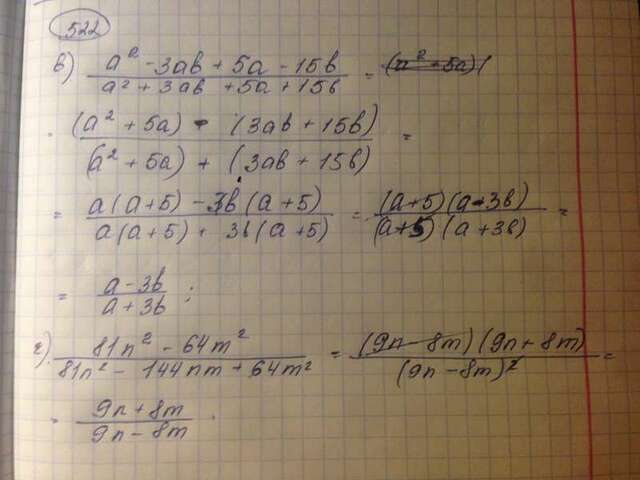 522
в) (a² - 3ab + 5a - 15b)/(a² + 3ab + 5a + 15b) =
= ((a² + 5a) - (3ab + 15b))/((a² + 5a) + (3ab + 15b)) =
= (a(a+5) - 3b(a+5))/(a(a+5) + 3b(a+5)) = ((a+5)(a-3b))/((a+5)(a+3b)) =
= (a-3b)/(a+3b) ;
г) (81n² - 64m²)/(81n² - 144nm + 64m²) = ((9n - 8m)(9n + 8m))/(9n - 8m)² =
= (9n + 8m)/(9n - 8m) .